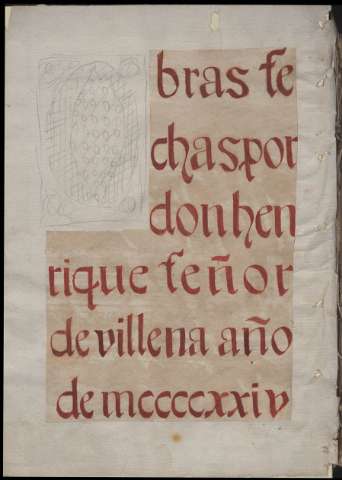 bras fe
chas por
don hen
rique señor
de villena año
de mccccxxiv